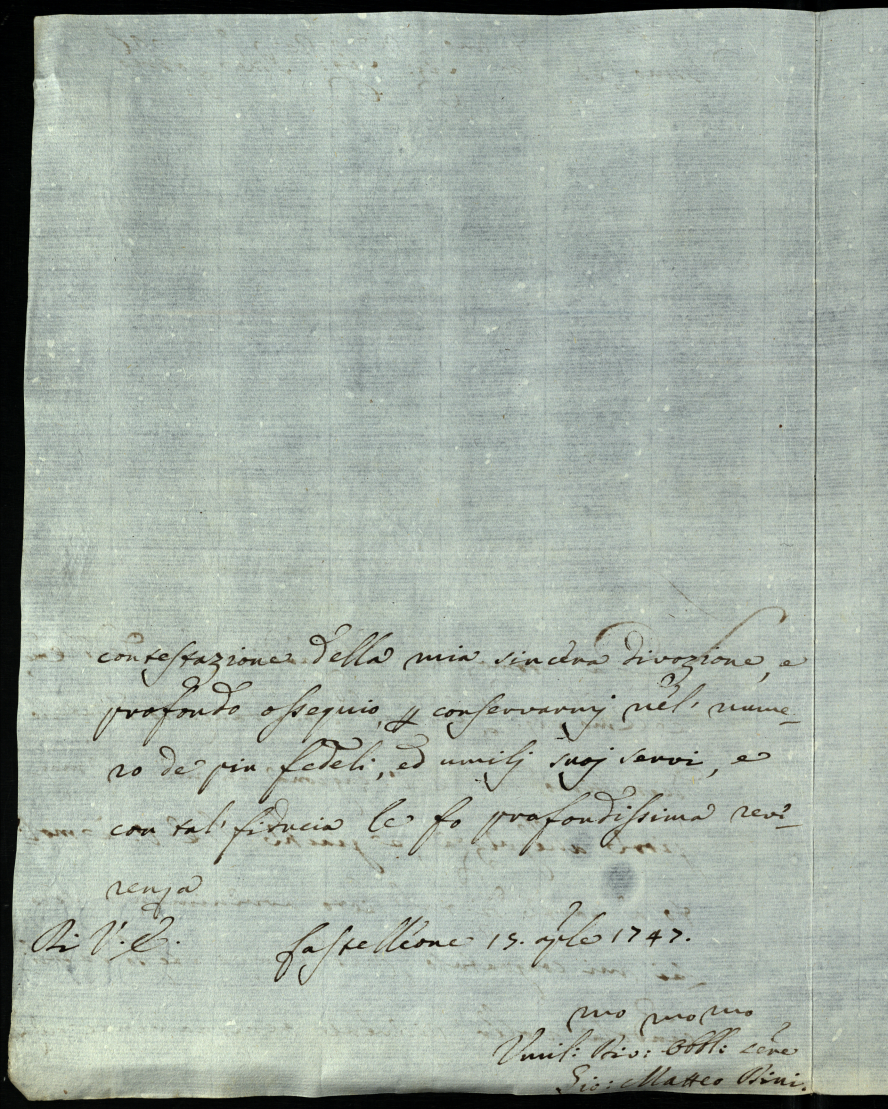 contestazione della mia sincera divozione, e
profondo ossequio, ꝑ conservarmj nel' nume-
ro de più fedeli, ed umilj suoj servi, e
con tal' fiducia le fo profondissima reve-
renza
Di V. E. Castelleone 15. aple 1747.
mo mo mo
Umil: Div: Obbl: sere
Gio: Matteo Bini.